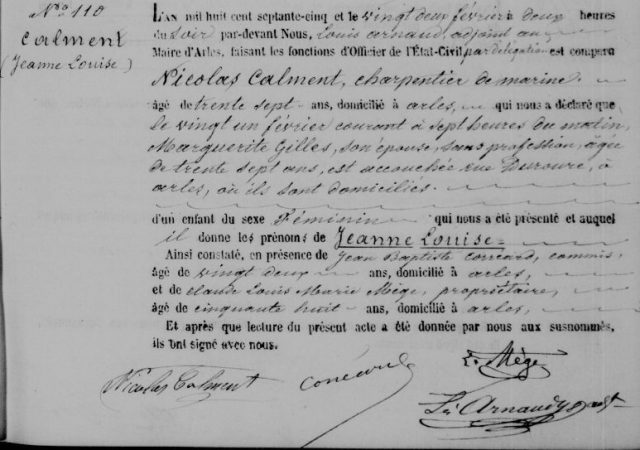 N° 110
Calment
(Jeanne Louise)
L'AN mil huit cent septante-cinq et le vingt deux février deux heures
du soir par-devant Nous, Louis Arnaud, adjoint au
Maire d'Arles, faisant les fonctions d'Officier de l'État-Civil par délégation est comparu
Nicolas Calment, charpentier de marine
âgé de trente sept ans, domicilié à arles, qui nous a déclaré que
le vingt un février courant à sept heures du matin,
Marguerite Gilles, son épouse, sans profession, âgée
de trente sept ans, est accouchée rue Duroure, à
arles, où ils sont domiciliés.
d'un enfant du sexe Féminin qui nous a été présenté et auquel
il donne les prénoms de Jeanne Louise
Ainsi constaté, en présence de Jean Baptiste Corréard, commis,
âgé de vingt deux ans, domicilié à arles,
et de Claude Louis Marie Mège, propriétaire,
âgé de cinquante huit ans, domicilié à arles,
Et après que lecture du présent acte a été donnée par nous aux susnommés,
ils ont signé avec nous.
Nicolas Calment
L. Mège
Ls Arnaud